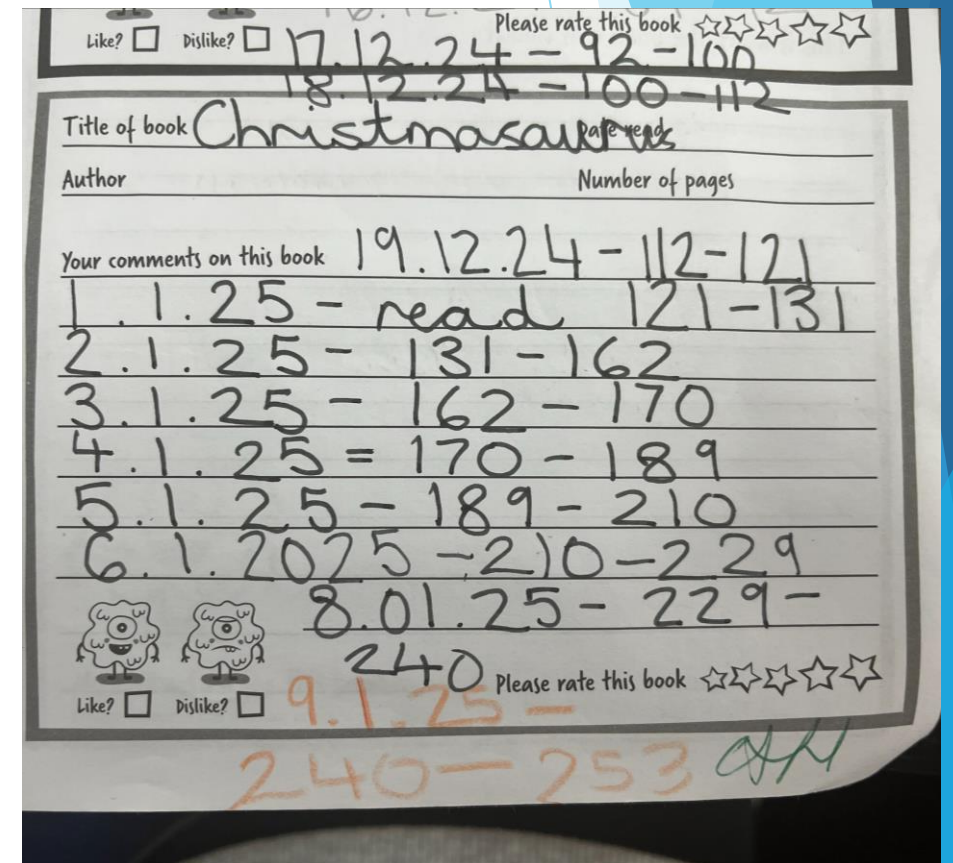 Like? Dislike? Please rate this book
17.12.24 - 92 - 100
18.12.24 - 100 - 112
Title of book Christmasaurus Date read
Author Number of pages
Your comments on this book 19.12.24 - 112 - 121
1.1.25 - read 121 - 131
2.1.25 - 131 - 162
3.1.25 - 162 - 170
4.1.25 = 170 - 189
5.1.25 - 189 - 210
6.1.2025 - 210 - 229
8.01.25 - 229 -
240 Please rate this book
Like? Dislike? 9.1.25 -
240 - 253